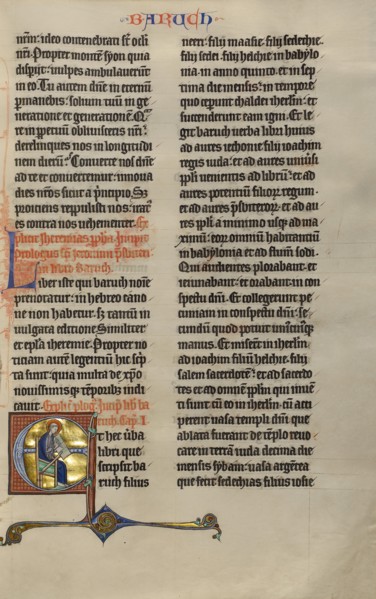 BARUCH
nr̃m: ideo contenebrati sũt oculi
nr̃i. Propter montem syon quia
disperijt: uulpes ambulauerunt
in eo. Tu autem dñe in eternũ
permanebis: solium tuũ in ge
neratione et generationẽ. Qua
re in perpetuũ obliuisceris nr̃i:
derelinques nos in longitudi
nem dierũ: Conuerte nos dñe
ad te et conuertemur: innoua
dies nr̃os sicut a principio. Sz
proiciens reppulisti nos: iratus es
contra nos uehementer. Ex
plicit
prologus
in libro Baruch.
Liber iste qui baruch nomine
prenotatur: in hebreo cano
ne non habetur. sz tantũ in
uulgata editione. Similiter
et epl̃a iheremie. Propter no
ticiam autem legentiũ hic scri
pta sunt: quia multa de xp̃o
nouissimisque temporibus indi
cant. Explicit plog̃. Incip̃ lib̃ ba
ruch. Cap̃. I.
Et hec uerba
libri que
scripsit ba
ruch filius
neeri. filij maasie. filij sedechie.
filij sedei. filij helchie in babylo
nia. in anno quinto. et in sep
tima die mensis: in tempore
quo ceperunt chaldei ihrlm̃: et
succenderunt eam igni. Et le
git baruch uerba libri huius
ad aures iechonie filij ioachim
regis iuda: et ad aures uniuersi
ppl̃i uenientis ad librũ: et ad
aures potentiũ filiorũ regum:
et ad aures presbiterorũ: et ad au
res ppl̃i a minimo usque ad ma
ximũ: eorũ omniũ habitantiũ
in babylonia et ad flumẽ sodi.
Qui audientes plorabant: et
ieiunabant: et orabant in con
spectu dñi. Et collegerunt pe
cuniam in conspectu dñi: se
cundũ quod potuit uniuscuiusque
manus. Et miserũt in ihrlm̃
ad ioachim filiũ helchie. filij
salem sacerdotẽ: et ad sacerdo
tes et ad omnem ppl̃m qui inuẽ
ti sunt cũ eo in ihrlm̃: cũ acci
peret uasa templi dñi: que
ablata fuerant de tẽplo reuo
care in terrã iuda decima die
mensis syban: uasa argẽtea
que fecit sedechias filius iosie